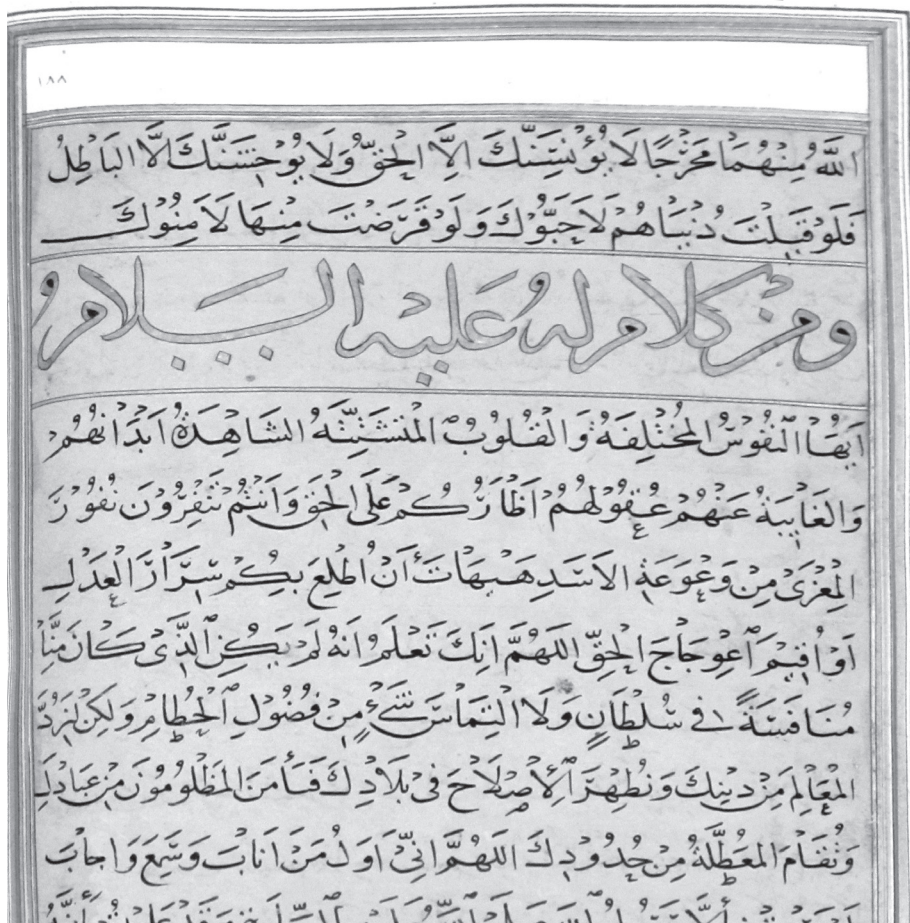 ١٨٨
اللَّهُ مِنْهُمَا مَخْرَجًا لَا يُؤْنِسَنَّكَ اِلَّا الْحَقُّ وَلَا يُوْحِشَنَّكَ اِلَّا الْبَاطِلُ
فَلَوْ قَبِلْتَ دُنْيَاهُمْ لَاَحَبُّوْكَ وَلَوْ قَرَضْتَ مِنْهَا لَاَمِنُوْكَ
ومن كلام له عليه السلام
اَيَّتُهَا النُّفُوْسُ الْمُخْتَلِفَةُ وَالْقُلُوْبُ الْمُتَشَتِّتَةُ الشَّاهِدَةُ اَبْدَانُهُمْ
وَالْغَايِبَةُ عَنْهُمْ عُقُوْلُهُمْ اَظْأَرُكُمْ عَلَى الْحَقِّ وَاَنْتُمْ تَنْفِرُوْنَ نُفُوْرَ
الْمِعْزَىٰ مِنْ وَعْوَعَةِ الْاَسَدِ هَيْهَاتَ أَنْ اَطْلَعَ بِكُمْ سَرَارَ الْعَدْلِ
اَوْ اُقِيْمَ اعْوِجَاجَ الْحَقِّ اللَّهُمَّ اِنَّكَ تَعْلَمُ اَنَّهُ لَمْ يَكُنِ الَّذِىْ كَانَ مِنَّا
مُنَافَسَةً فِى سُلْطَانٍ وَلَا الْتِمَاسَ شَىْءٍ مِنْ فُضُوْلِ الْحُطَامِ وَلَكِنْ لِنَرُدَّ
الْمَعَالِمَ مِنْ دِيْنِكَ وَنُظْهِرَ الْاِصْلَاحَ فِى بِلَادِكَ فَيَأْمَنَ الْمَظْلُوْمُوْنَ مِنْ عِبَادِكَ
وَتُقَامَ الْمُعَطَّلَةُ مِنْ حُدُوْدِكَ اللَّهُمَّ اِنِّىْ اَوَّلُ مَنْ اَنَابَ وَسَمِعَ وَاَجَابَ